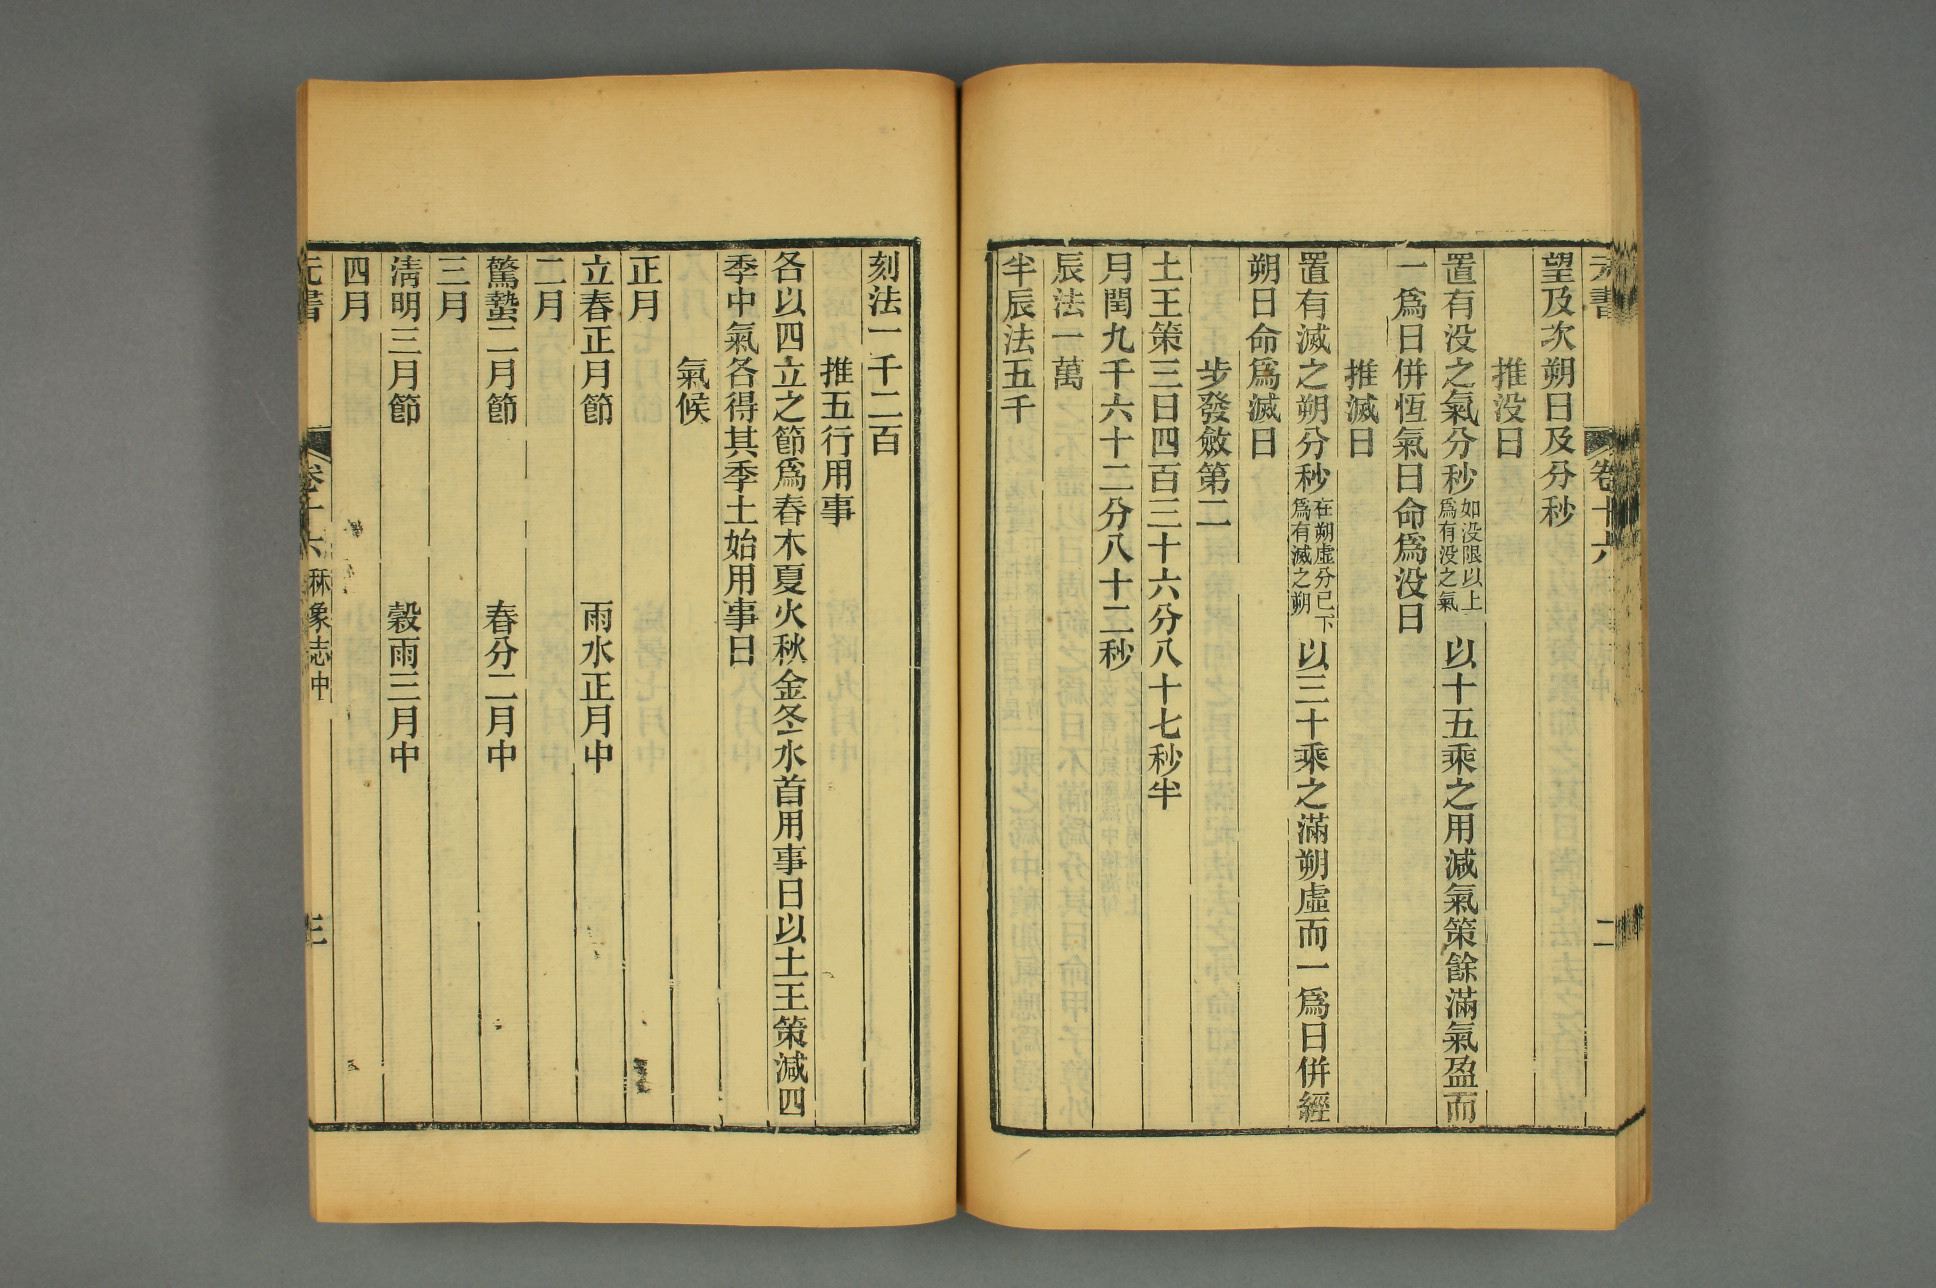 元書
卷十六
二
望及次朔日及分秒
推没日
置有没之氣分秒如没限以上爲有没之氣以十五乘之用減氣策餘滿氣盈而
一爲日併恆氣日命爲没日
推滅日
置有滅之朔分秒在朔虛分已下爲有滅之朔以三十乘之滿朔虛而一爲日併經
朔日命爲滅日
步發斂第二
土王策三日四百三十六分八十七秒半
月閏九千六十二分八十二秒
辰法一萬
半辰法五千
刻法一千二百
推五行用事
各以四立之節爲春木夏火秋金冬水首用事日以土王策減四
季中氣各得其季土始用事日
氣候
正月
立春正月節 雨水正月中
二月
驚蟄二月節 春分二月中
三月
清明三月節 穀雨三月中
四月
元書
卷十六秝象志中
三